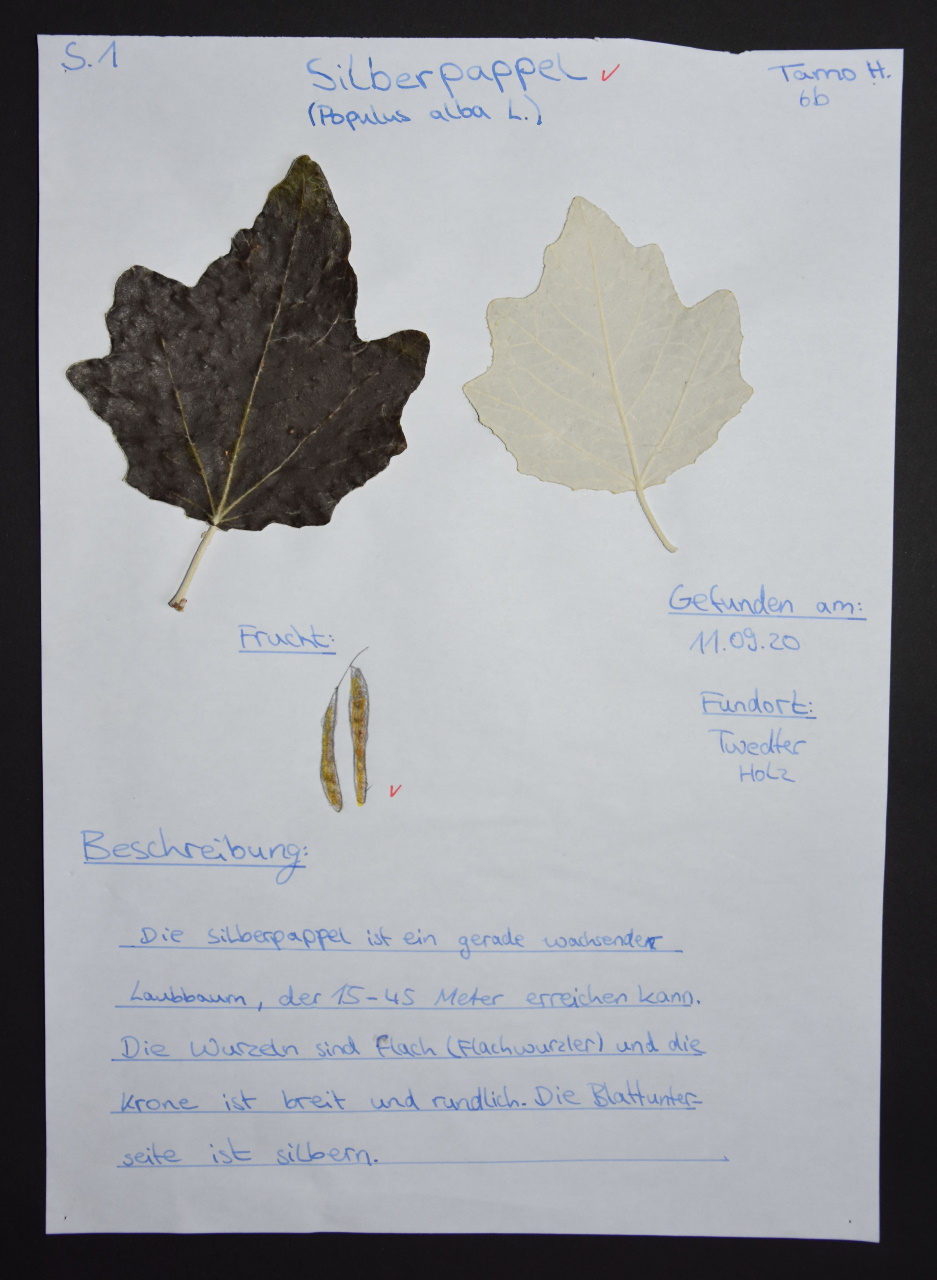 S.1
Silberpappel
(Populus alba L.)
Tamo H.
6b
Gefunden am:
11.09.20
Frucht:
Fundort:
Twedter
Holz
Beschreibung:
Die Silberpappel ist ein gerade wachsender
Laubbaum, der 15-45 Meter erreichen kann.
Die Wurzeln sind flach (Flachwurzler) und die
Krone ist breit und rundlich. Die Blattunter-
seite ist silbern.